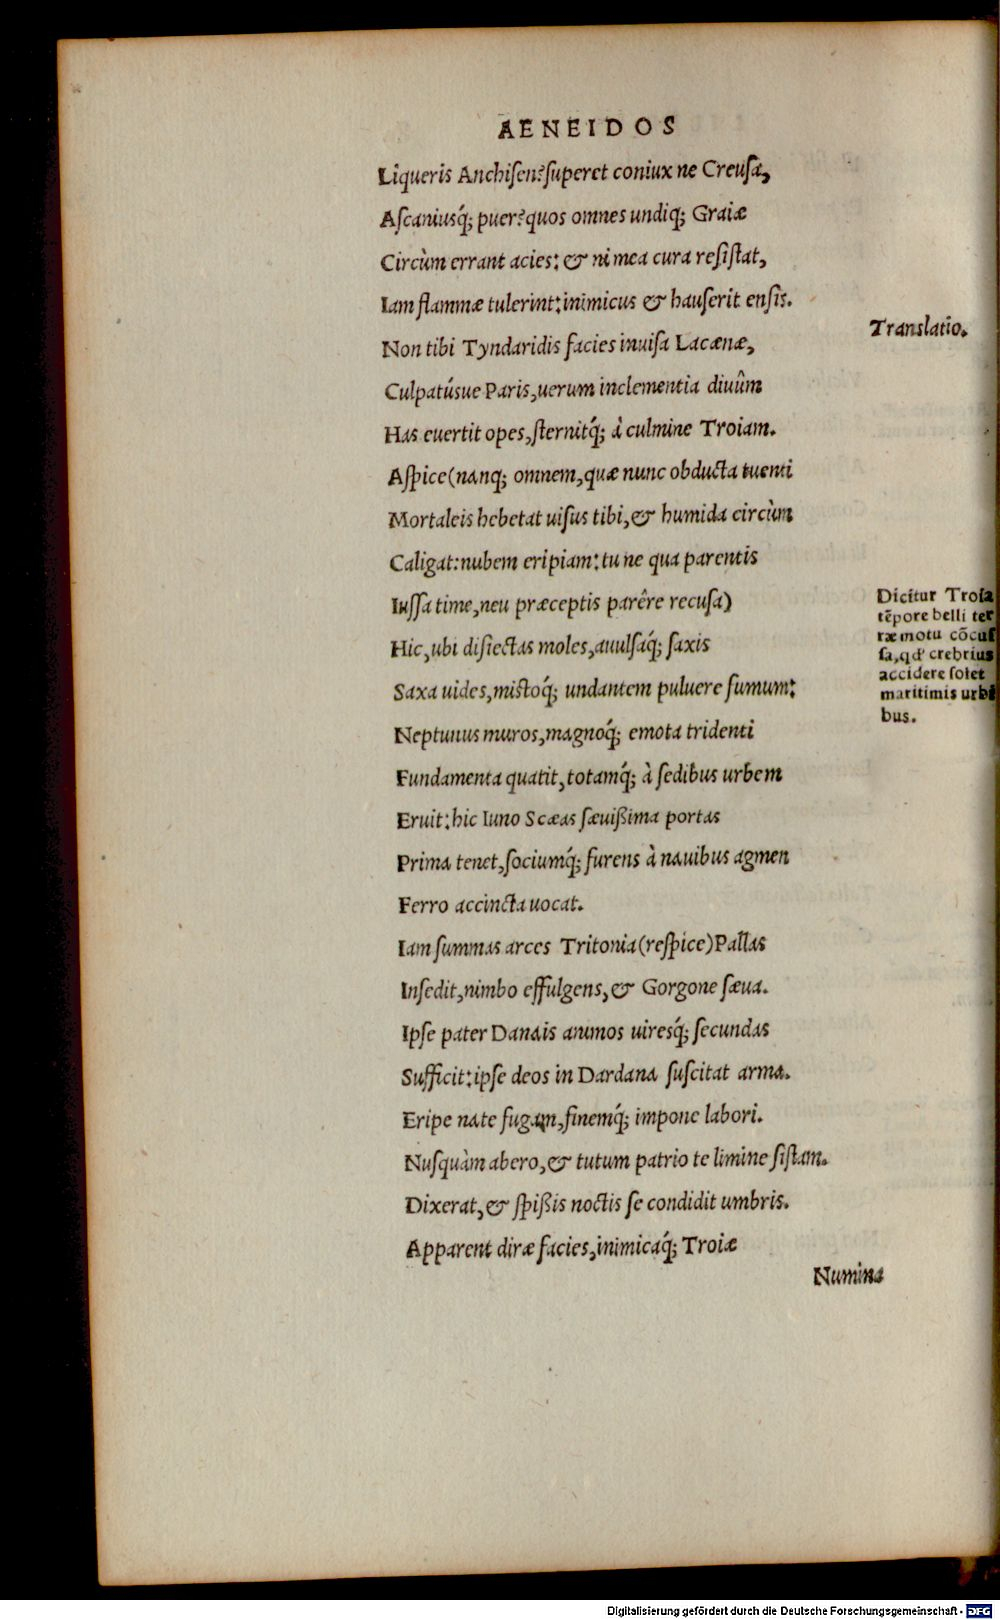 AENEIDOS
Liqueris Anchiſen? ſuperet coniux ne Creuſa,
Aſcaniusq́; puer? quos omnes undiq; Graiæ
Circùm errant acies: & ni mea cura reſiſtat,
Iam flammæ tulerint: inimicus & hauſerit enſis.
Translatio.
Non tibi Tyndaridis facies inuiſa Lacænæ,
Culpatúsue Paris, uerum inclementia diuûm
Has euertit opes, ſternitq́; à culmine Troiam.
Aſpice (nanq; omnem, quæ nunc obducta tuenti
Mortaleis hebetat uiſus tibi, & humida circùm
Caligat: nubem eripiam: tu ne qua parentis
Iuſſa time, neu præceptis parêre recuſa)
Hic, ubi diſiectas moles, auulſaq́; ſaxis
Saxa uides, miſtoq́; undantem puluere fumum:
Neptunus muros, magnoq́; emota tridenti
Fundamenta quatit, totamq́; à ſedibus urbem
Eruit: hic Iuno Scæas ſæuißima portas
Prima tenet, ſociumq́; furens à nauibus agmen
Ferro accincta uocat.
Iam ſummas arces Tritonia (reſpice) Pallas
Inſedit, nimbo effulgens, & Gorgone ſæua.
Ipſe pater Danais animos uiresq́; ſecundas
Sufficit: ipſe deos in Dardana ſuſcitat arma.
Eripe nate fugam, finemq́; impone labori.
Nuſquàm abero, & tutum patrio te limine ſiſtam.
Dixerat, & ſpißis noctis ſe condidit umbris.
Apparent diræ facies, inimicaq́; Troiæ
Numina
Dicitur Troia
tẽpore belli ter
ræ motu cõcuſ
ſa, qd' crebrius
accidere ſolet
maritimis urbi
bus.
Digitalisierung gefördert durch die Deutsche Forschungsgemeinschaft - DFG